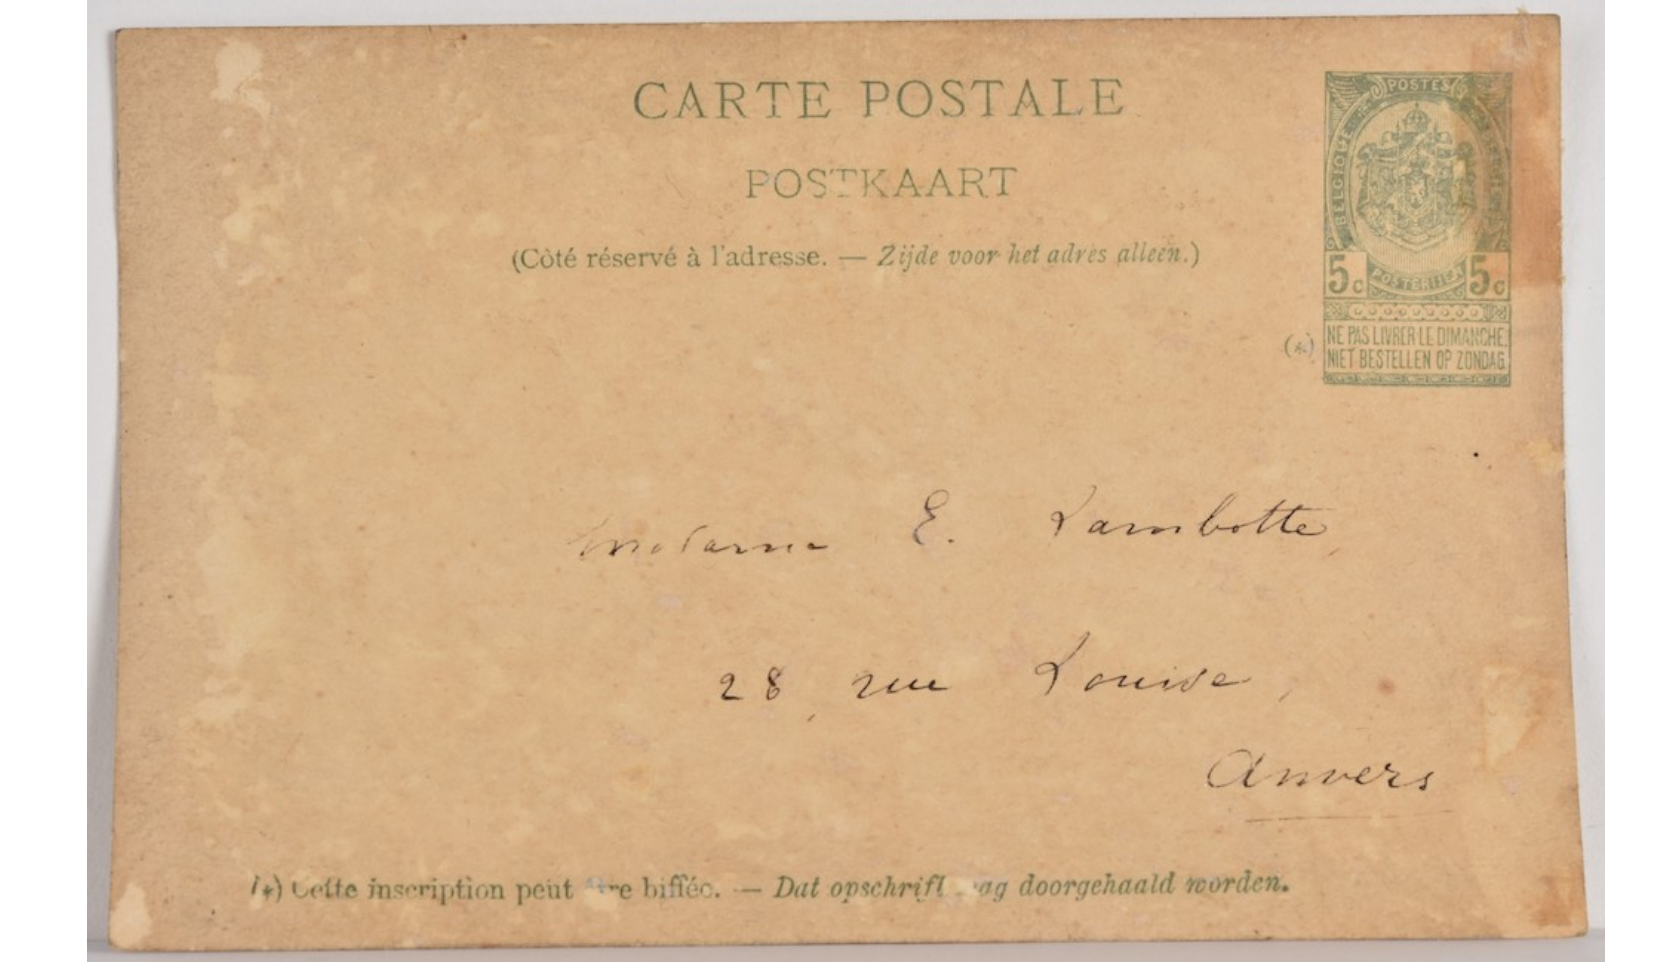 CARTE POSTALE
POSTKAART
(Côté réservé à l'adresse. — Zijde voor het adres alleen.)
POSTES
BELGIQUE
5c POSTERIJEN 5c
(*) NE PAS LIVRER LE DIMANCHE.
NIET BESTELLEN OP ZONDAG.
Madame E. Lambotte,
28, rue Louise,
Anvers
(*) Cette inscription peut être biffée. — Dat opschrift mag doorgehaald worden.